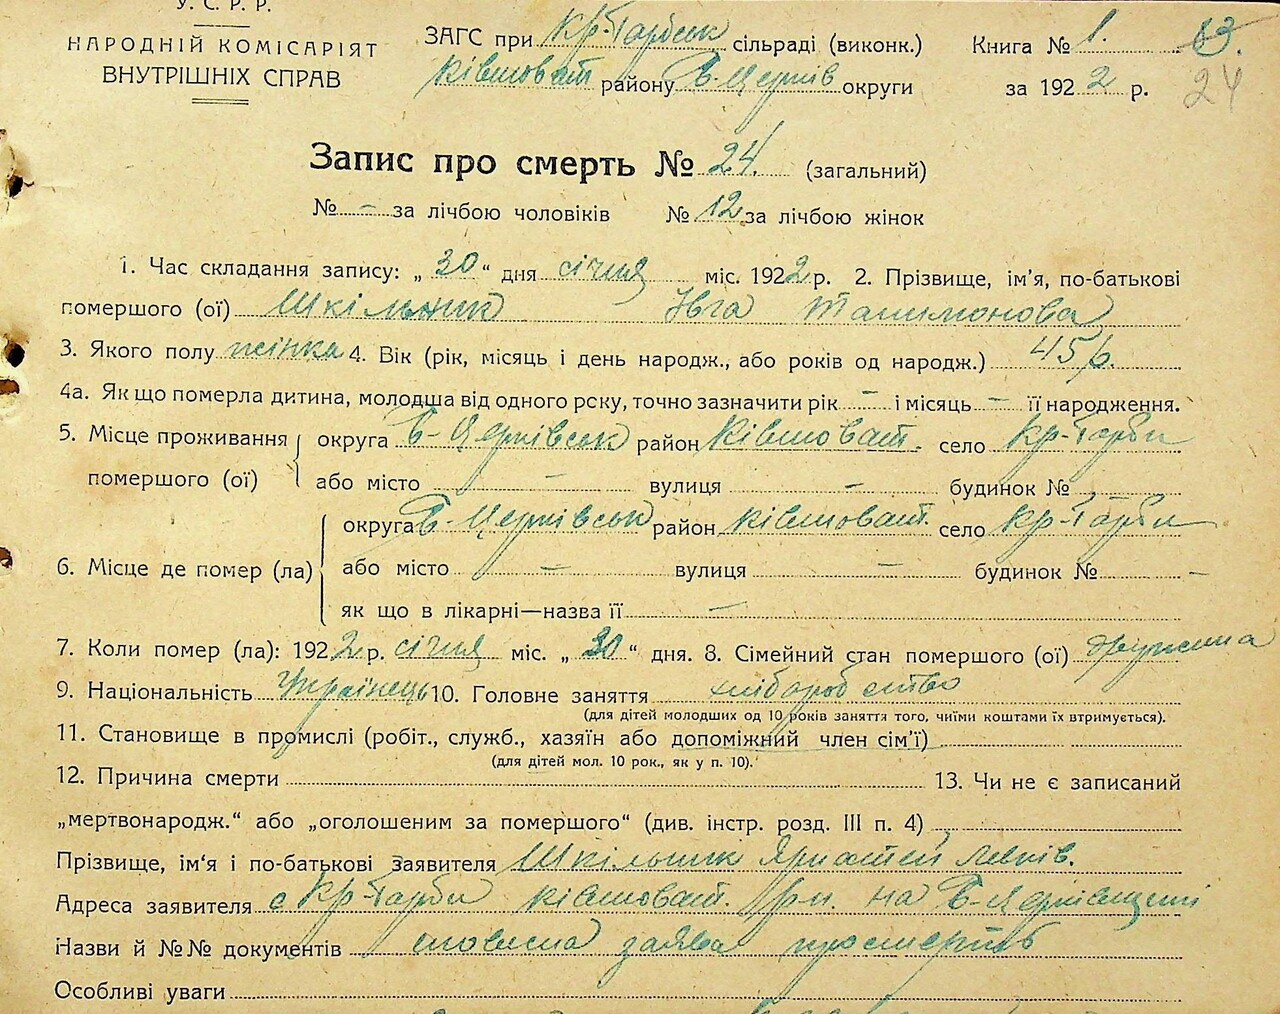 У. С. Р. Р.
НАРОДНІЙ КОМІСАРІЯТ
ВНУТРІШНІХ СПРАВ
ЗАГС при Кр-Гарбськ сільраді (виконк.)
Ківшоват районy Б-Церків округи
Книга № 1. 13.
за 1922 р. 24
Запис про смерть № 24. (загальний)
№ – за лічбою чоловіків № 12 за лічбою жінок
1. Час складання запису: „30“ дня січня міс. 1922 р. 2. Прізвище, ім’я, по-батькові
помершого (ої) Шкільник Івга
3. Якого полу жінка 4. Вік (рік, місяць і день народж., або років од народж.) 45 р.
4а. Як що померла дитина, молодша від одного рску, точно зазначити рік – і місяць – її народження.
5. Місце проживання помершого (ої) округа Б-Церківськ район Ківшоват. село Кр-Гарби
або місто – вулиця – будинок №
6. Місце де помер (ла) округа Б-Церківськ район Ківшоват. село Кр-Гарби
або місто – вулиця – будинок № –
як що в лікарні—назва її –
7. Коли помер (ла): 1922 р. січня міс. „30“ дня. 8. Сімейний стан помершого (ої) дружина
9. Національність Українець 10. Головне заняття хліборобство
(для дітей молодших од 10 років заняття того, чиїми коштами їх втримується).
11. Становище в промислі (робіт., служб., хазяїн або допоміжний член сім’ї)
(для дітей мол. 10 рок., як у п. 10).
12. Причина смерти 13. Чи не є записаний
„мертвонародж.“ або „оголошеним за помершого“ (див. інстр. розд. III п. 4)
Прізвище, ім‘я і по-батькові заявителя Шкільник
Адреса заявителя с Кр-Гарби Ківшоват. р-н. на Б-Церківщині
Назви й №№ документів словесна заява про смерть
Особливі уваги